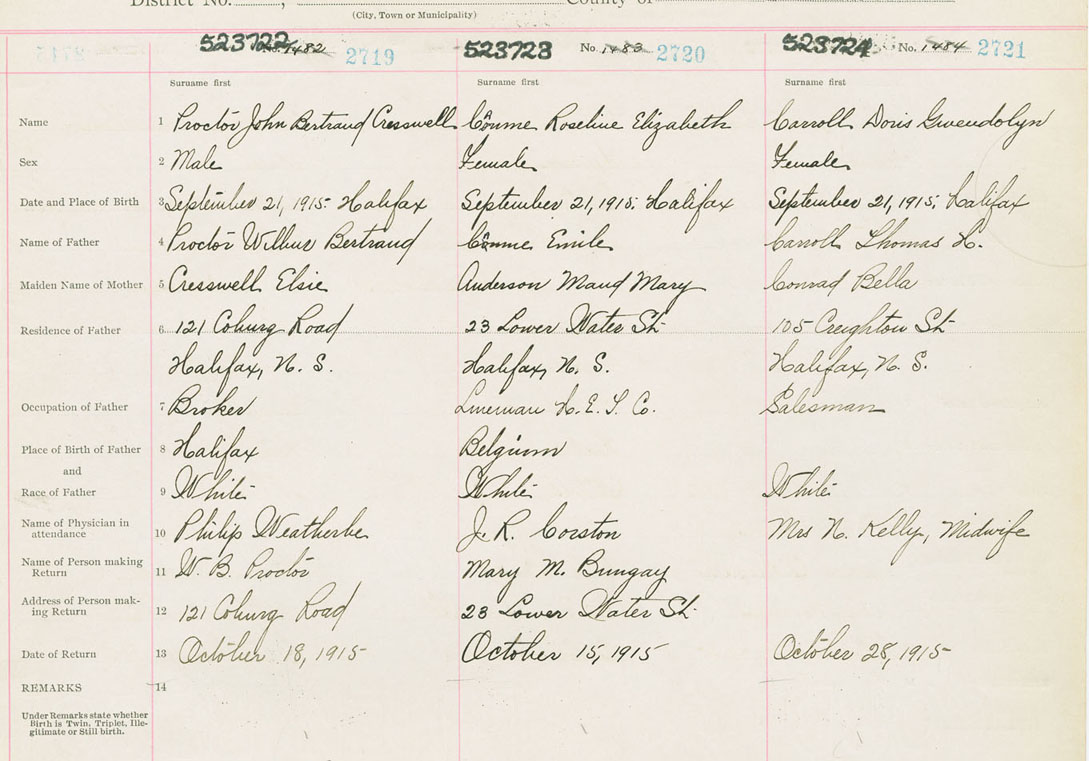 District No. , County of
(City, Town or Municipality)
523722 No. 1482 2719 523723 No. 1483 2720 523724 No. 1484 2721
Surname first Surname first Surname first
Name 1 Proctor John Bertrand Cresswell Roseline Elizabeth Carroll Doris Gwendolyn
Sex 2 Male Female Female
Date and Place of Birth 3 September 21, 1915. Halifax September 21, 1915. Halifax September 21, 1915. Halifax
Name of Father 4 Proctor Wilbur Bertrand Emile Carroll Thomas H.
Maiden Name of Mother 5 Cresswell Elsie Anderson Maud Mary Conrad Bella
Residence of Father 6 121 Coburg Road 23 Lower Water St. 105 Creighton St.
Halifax, N. S. Halifax, N. S. Halifax, N. S.
Occupation of Father 7 Broker Lineman H. E. T. Co. Salesman
Place of Birth of Father 8 Halifax Belgium
and
Race of Father 9 White White White
Name of Physician in attendance 10 Philip Weatherbe J. R. Corston Mrs N. Kelly, Midwife
Name of Person making Return 11 W. B. Proctor Mary M. Bungay
Address of Person mak-ing Return 12 121 Coburg Road 23 Lower Water St.
Date of Return 13 October 18, 1915 October 15, 1915 October 28, 1915
REMARKS 14
Under Remarks state whether
Birth is Twin, Triplet, Ille-
gitimate or Still birth.